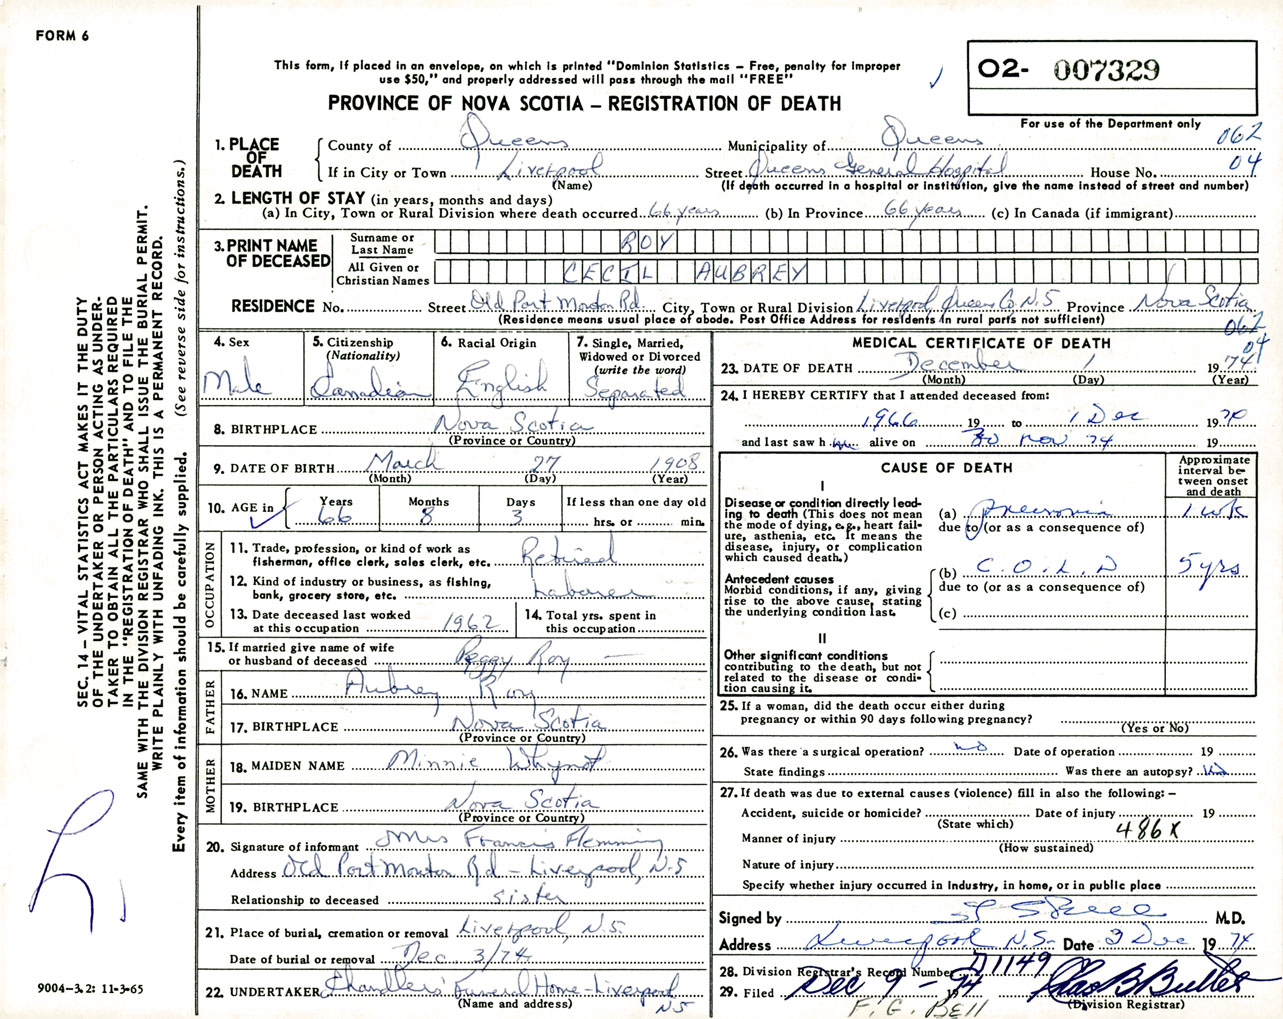 FORM 6
This form, if placed in an envelope, on which is printed "Dominion Statistics – Free, penalty for improper
use $50," and properly addressed will pass through the mail "FREE"
PROVINCE OF NOVA SCOTIA – REGISTRATION OF DEATH
O2- 007329
For use of the Department only
062
04
1. PLACE OF DEATH
County of Queens Municipality of Queens
If in City or Town Liverpool Street Queens General Hospital House No.
(Name) (If death occurred in a hospital or institution, give the name instead of street and number)
2. LENGTH OF STAY (in years, months and days)
(a) In City, Town or Rural Division where death occurred 66 years (b) In Province 66 years (c) In Canada (if immigrant)
3. PRINT NAME OF DECEASED
Surname or Last Name ROY
All Given or Christian Names CECIL AUBREY
RESIDENCE No. Street Old Port Mouton Rd. City, Town or Rural Division Liverpool, Queens Co, N.S Province Nova Scotia
(Residence means usual place of abode. Post Office Address for residents in rural parts not sufficient)
062
04
4. Sex
Male
5. Citizenship
(Nationality)
Canadian
6. Racial Origin
English
7. Single, Married,
Widowed or Divorced
(write the word)
Separated
8. BIRTHPLACE Nova Scotia
(Province or Country)
9. DATE OF BIRTH March 27 1908
(Month) (Day) (Year)
10. AGE in Years Months Days If less than one day old
66 8 3 hrs. or min.
OCCUPATION
11. Trade, profession, or kind of work as
fisherman, office clerk, sales clerk, etc. Retired
12. Kind of industry or business, as fishing,
bank, grocery store, etc. Labourer
13. Date deceased last worked
at this occupation 1962
14. Total yrs. spent in
this occupation
15. If married give name of wife
or husband of deceased Peggy Roy —
FATHER
16. NAME Aubrey Roy
17. BIRTHPLACE Nova Scotia
(Province or Country)
MOTHER
18. MAIDEN NAME Minnie Whynot
19. BIRTHPLACE Nova Scotia
(Province or Country)
20. Signature of informant Mrs Francis Flemming
Address Old Port Mouton Rd – Liverpool, N.S
Relationship to deceased sister
21. Place of burial, cremation or removal Liverpool, N.S.
Date of burial or removal Dec. 3/74
22. UNDERTAKER Chandlers' Funeral Home – Liverpool
(Name and address) N.S
MEDICAL CERTIFICATE OF DEATH
23. DATE OF DEATH December 1 1974
(Month) (Day) (Year)
24. I HEREBY CERTIFY that I attended deceased from:
1966 19 to 1 Dec 1970
and last saw h im alive on 30 Nov 74 19
CAUSE OF DEATH
Approximate
interval be-
tween onset
and death
I
Disease or condition directly lead-
ing to death (This does not mean
the mode of dying, e.g., heart fail-
ure, asthenia, etc. It means the
disease, injury, or complication
which caused death.)
(a) Pneumonia 1 wk
due to (or as a consequence of)
Antecedent causes
Morbid conditions, if any, giving
rise to the above cause, stating
the underlying condition last.
(b) C.O.L.D 5 yrs
due to (or as a consequence of)
(c)
II
Other significant conditions
contributing to the death, but not
related to the disease or condi-
tion causing it.
25. If a woman, did the death occur either during
pregnancy or within 90 days following pregnancy?
(Yes or No)
26. Was there a surgical operation? no Date of operation 19
State findings Was there an autopsy? no
27. If death was due to external causes (violence) fill in also the following: –
Accident, suicide or homicide? Date of injury 19
(State which)
Manner of injury 486X
(How sustained)
Nature of injury
Specify whether injury occurred in industry, in home, or in public place
Signed by M.D.
Address Liverpool N.S. Date 3 Dec 1974
28. Division Registrar's Record Number D1149
29. Filed Dec 9 – 1974 Chas B Butler
(Division Registrar)
F. G. Bell
SEC. 14 – VITAL STATISTICS ACT MAKES IT THE DUTY
OF THE UNDERTAKER OR PERSON ACTING AS UNDER-
TAKER TO OBTAIN ALL THE PARTICULARS REQUIRED
IN THE "REGISTRATION OF DEATH" AND TO FILE THE
SAME WITH THE DIVISION REGISTRAR WHO SHALL ISSUE THE BURIAL PERMIT.
WRITE PLAINLY WITH UNFADING INK. THIS IS A PERMANENT RECORD.
Every item of information should be carefully supplied. (See reverse side for instructions.)
9004-3.2: 11-3-65